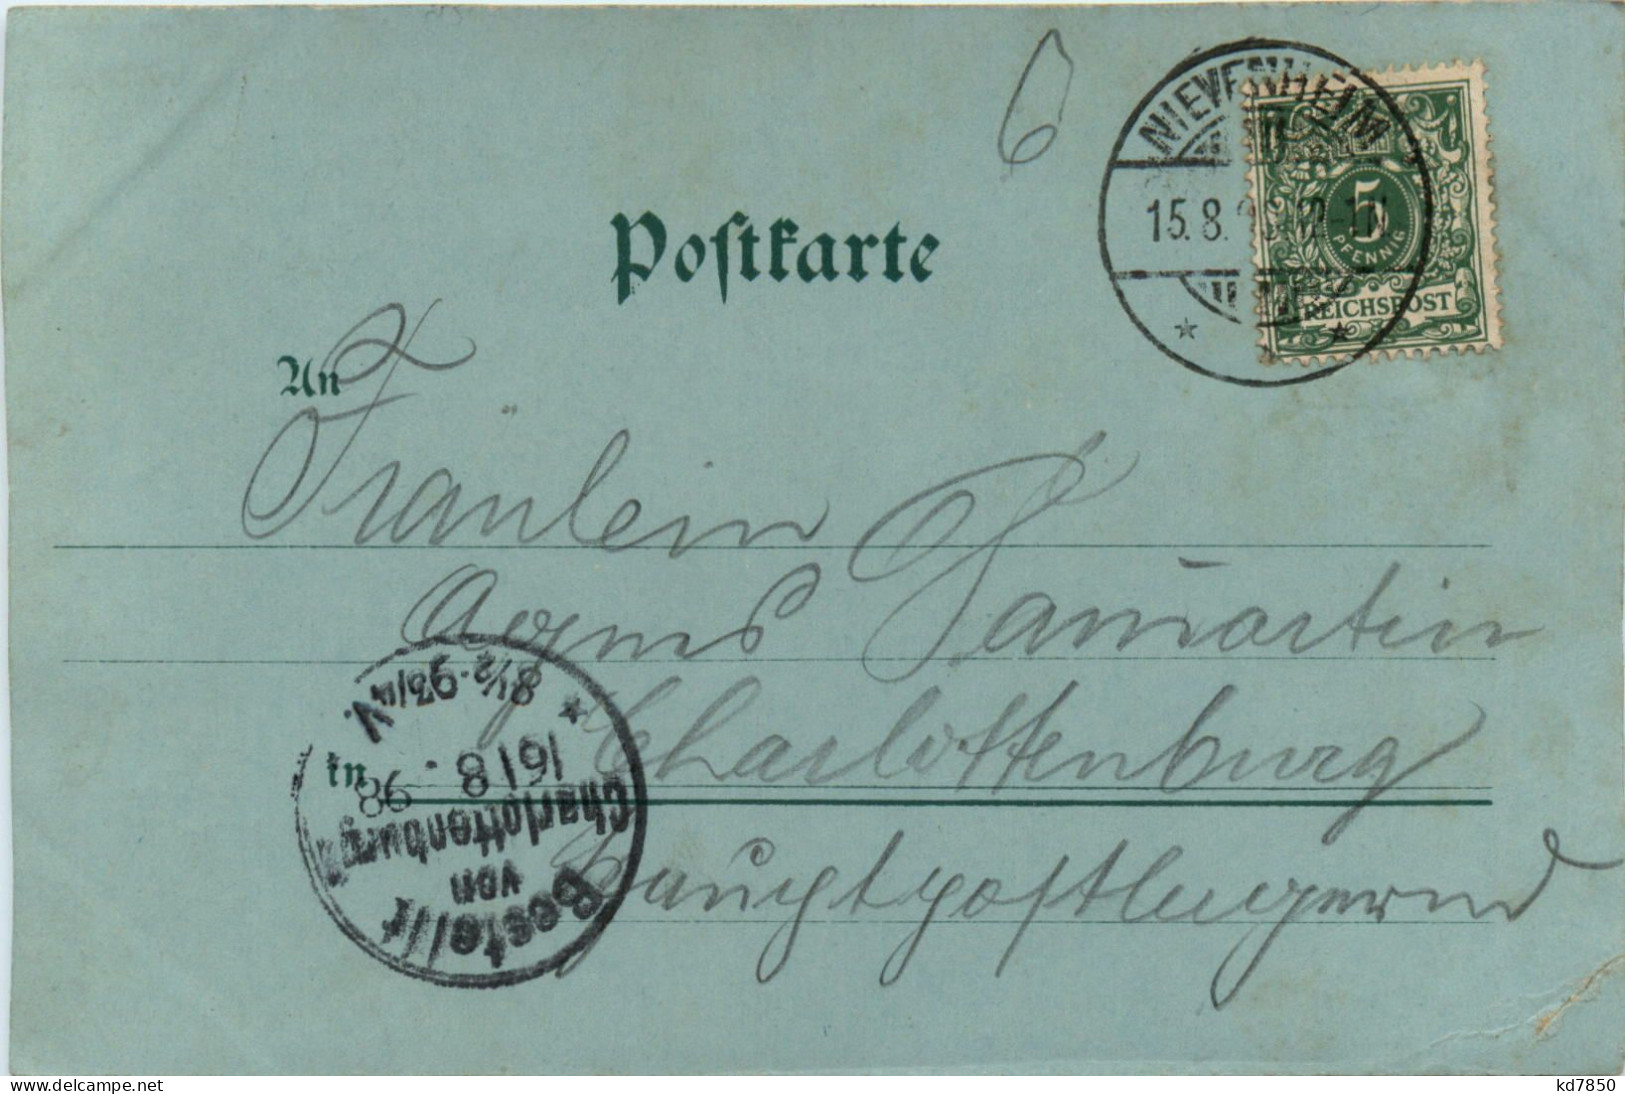 6
NIEVENHEIM
15.8. 12-1N
5
PFENNIG
REICHSPOST
Postkarte
An
Fräulein
Agnes Samartin
Charlottenburg
in
Hauptpostlagernd
Bestellt
von
Charlottenburg
16/8. 98
8½-9¾ V.
delcampe.net
kd7850